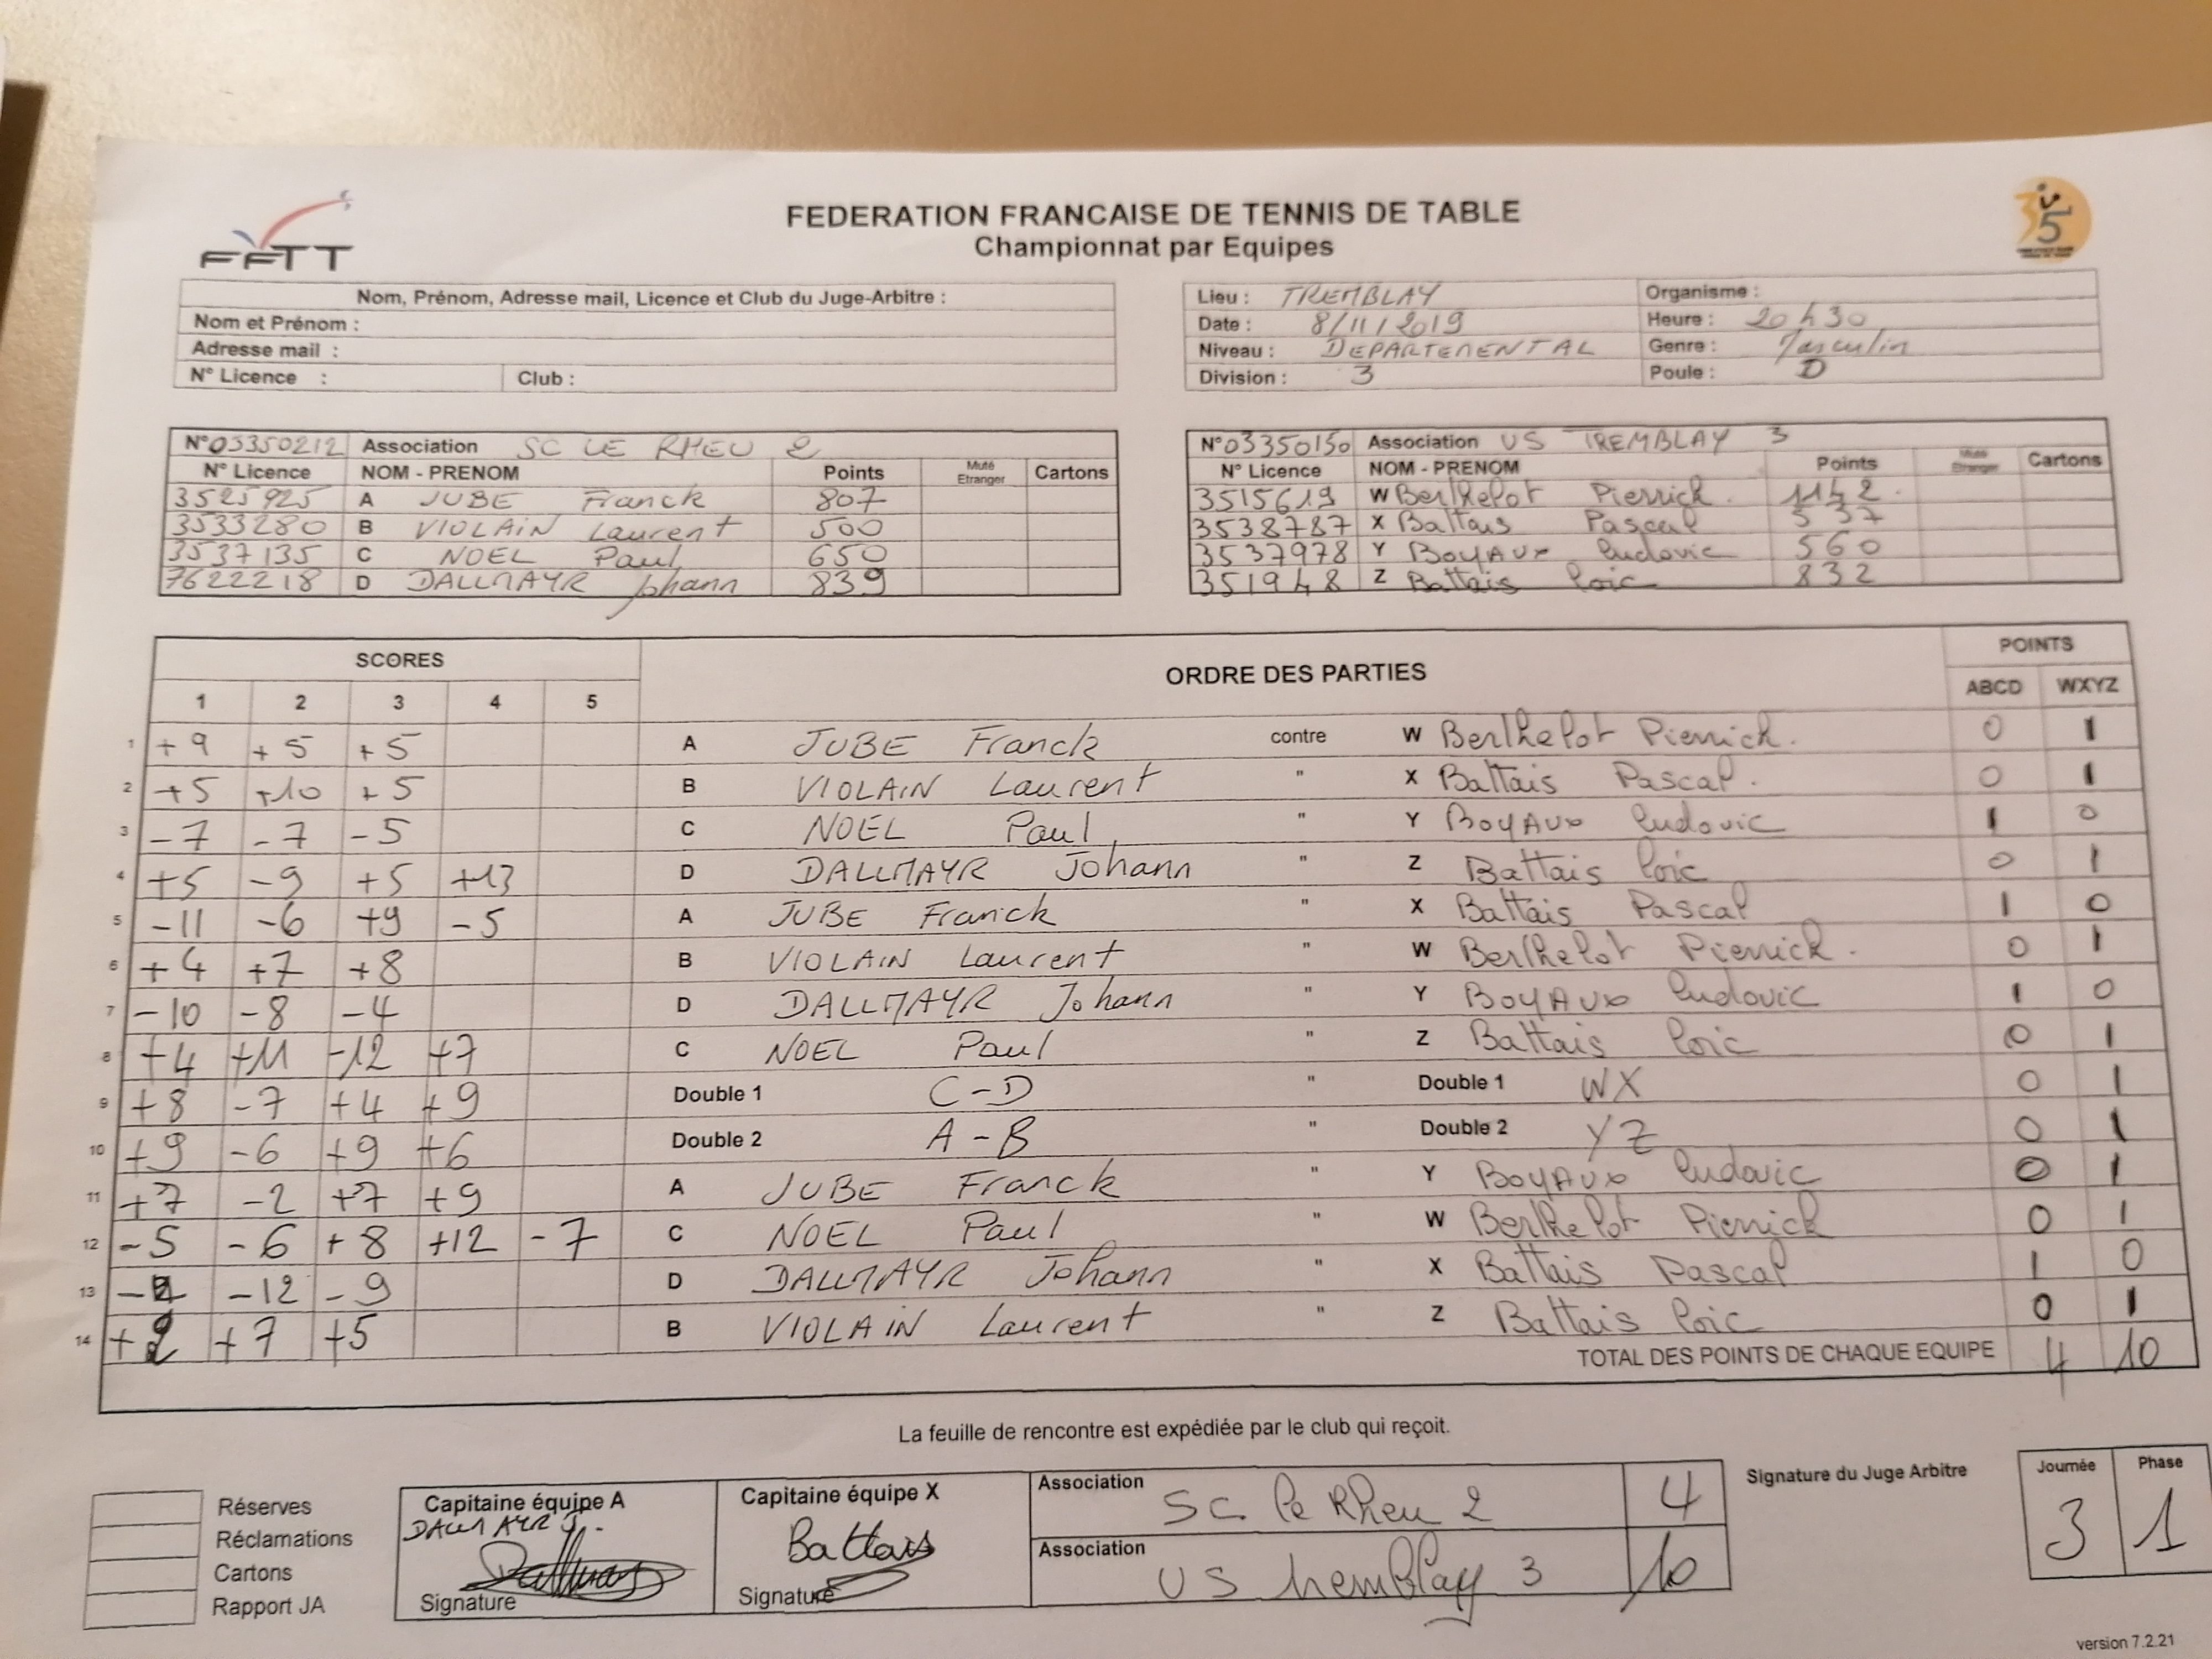 FEDERATION FRANCAISE DE TENNIS DE TABLE
Championnat par Equipes
FFTT
35
Nom, Prénom, Adresse mail, Licence et Club du Juge-Arbitre :
Nom et Prénom :
Adresse mail :
N° Licence : Club :
Lieu : TREMBLAY Organisme :
Date : 8/11/2019 Heure : 20h30
Niveau : DEPARTEMENTAL Genre : Masculin
Division : 3 Poule : D
N° 03350212 Association SC LE RHEU 2
N° Licence NOM - PRENOM Points Muté Etranger Cartons
3525925 A JUBE Franck 807
3533280 B VIOLAIN Laurent 500
3537135 C NOEL Paul 650
7622218 D DALLMAYR Johann 839
N° 03350150 Association US TREMBLAY 3
N° Licence NOM - PRENOM Points Muté Etranger Cartons
3515619 W Berthelot Pierrick. 1142.
3538787 X Battais Pascal 537
3537978 Y BOYAUX Ludovic 560
351948 Z Battais Loic 832
SCORES ORDRE DES PARTIES POINTS
1 2 3 4 5 ABCD WXYZ
1 +9 +5 +5 A JUBE Franck contre W Berthelot Pierrick. 0 1
2 +5 +10 +5 B VIOLAIN Laurent " X Battais Pascal. 0 1
3 -7 -7 -5 C NOEL Paul " Y BOYAUX Ludovic 1 0
4 +5 -9 +5 +13 D DALLMAYR Johann " Z Battais Loic 0 1
5 -11 -6 +9 -5 A JUBE Franck " X Battais Pascal 1 0
6 +4 +7 +8 B VIOLAIN Laurent " W Berthelot Pierrick. 0 1
7 -10 -8 -4 D DALLMAYR Johann " Y BOYAUX Ludovic 1 0
8 +4 +11 -12 +7 C NOEL Paul " Z Battais Loic 0 1
9 +8 -7 +4 +9 Double 1 C-D " Double 1 WX 0 1
10 +9 -6 +9 +6 Double 2 A-B " Double 2 YZ 0 1
11 +7 -2 +7 +9 A JUBE Franck " Y BOYAUX Ludovic 0 1
12 -5 -6 +8 +12 -7 C NOEL Paul " W Berthelot Pierrick 0 1
13 -12 -9 D DALLMAYR Johann " X Battais Pascal 1 0
14 +7 +5 B VIOLAIN Laurent " Z Battais Loic 0 1
TOTAL DES POINTS DE CHAQUE EQUIPE 4 10
La feuille de rencontre est expédiée par le club qui reçoit.
Réserves
Réclamations
Cartons
Rapport JA
Capitaine équipe A
DALLMAYR J.
Signature
Capitaine équipe X
Battais
Signature
Association SC. le Rheu 2 4
Association US tremblay 3 10
Signature du Juge Arbitre
Journée Phase
3 1
version 7.2.21